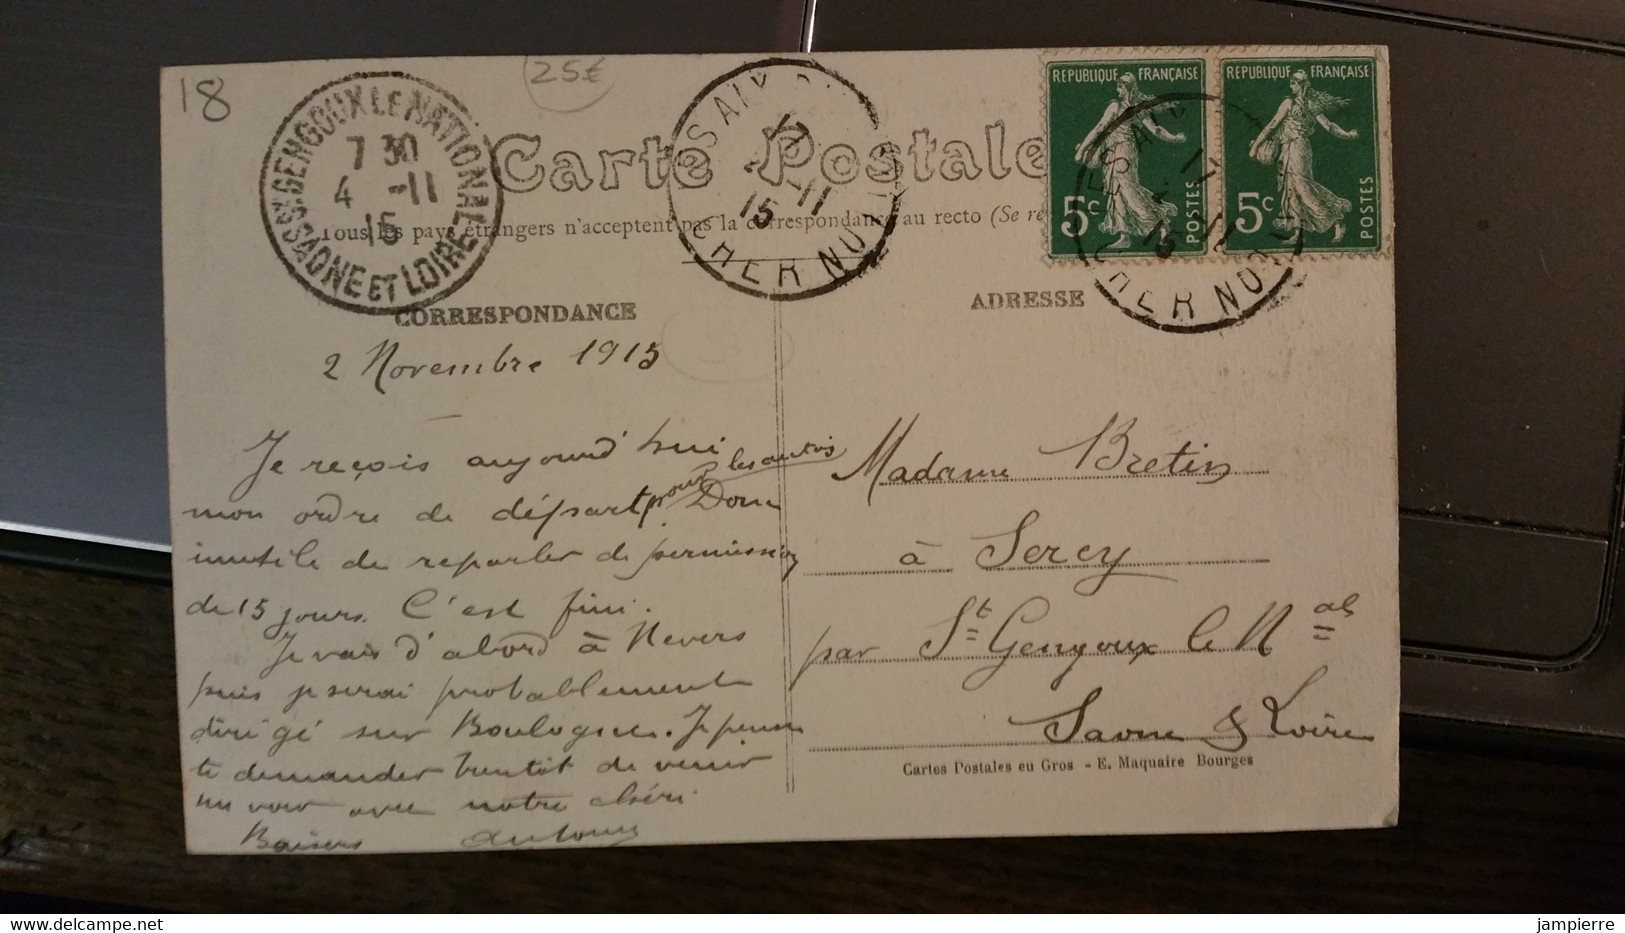 18
25€
ST GENGOUX LE NATIONAL
7 30
4 -11
15
SAONE ET LOIRE
Carte Postale
17
-11
15
CHER
RÉPUBLIQUE FRANÇAISE
5c
POSTES
RÉPUBLIQUE FRANÇAISE
5c
POSTES
11
-11
15
CHER
Tous les pays étrangers n'acceptent pas la correspondance au recto (Se re
CORRESPONDANCE
ADRESSE
2 Novembre 1915
Je reçois aujourd'hui
mon ordre de départ pour les autos Donc
inutile de reparler de permission
de 15 jours. C'est fini.
Je vais d'abord à Nevers
puis je serai probablement
dirigé sur Boulogne. Je pense
te demander bientôt de venir
me voir avec notre chéri
Baisers Antony
Madame Bretin
à Sercy
par St Gengoux le Nal
Saone & Loire
Cartes Postales eu Gros - E. Maquaire Bourges
jampierre